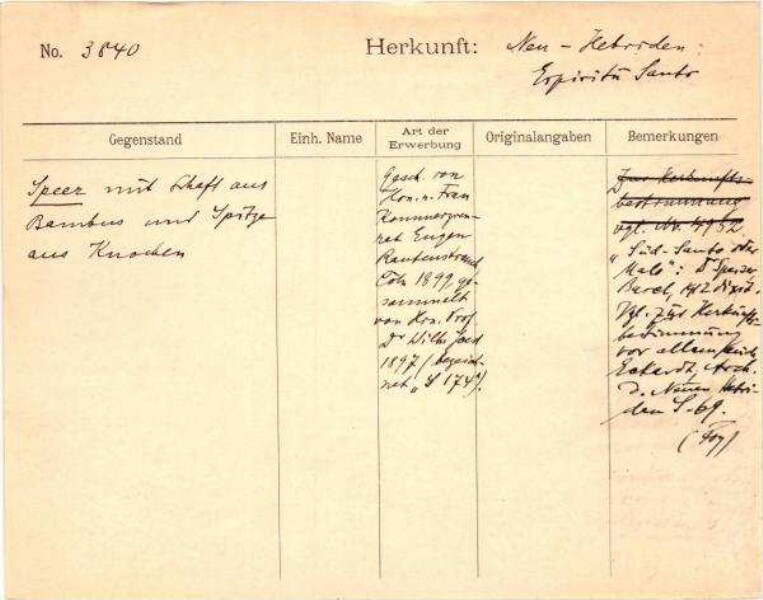 No. 3840
Herkunft: Neu-Hebriden:
Espiritu Santo
Gegenstand
Einh. Name
Art der
Erwerbung
Originalangaben
Bemerkungen
Speer mit Schaft aus
Bambus und Spitze
aus Knochen
Gesch. von
Hrn. u. Frau
Kommerzien-
rat Eugen
Rautenstrauch
Cöln 1899 ge-
sammelt
von Hrn. Prof.
Dr Wilh. Joest
1897 (bezeich-
net „S 174").
Zur Herkunfts-
bestimmung
vgl. No. 4952
"Süd-Santo oder
Malo": Dr Speiser
Basel, 1912 dixit.
Vgl. zur Herkunfts-
bestimmung
vor allem
Eckardt, Arch.
d. Neuen Hebri-
den S. 69.
(Foy)